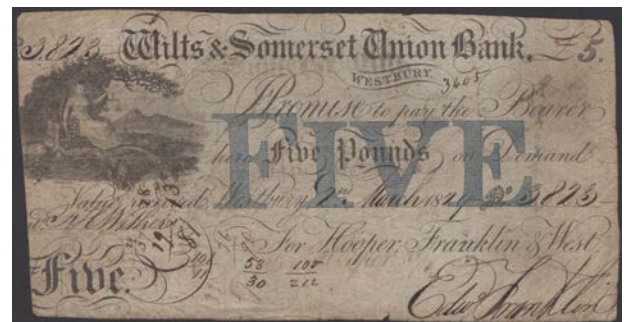 3,823 Wilts & Somerset Union Bank. £5.
WESTBURY. 3605
I Promise to pay the Bearer
here Five Pounds on Demand
FIVE
Value received. Westbury March 1829 No 3823
For Hooper, Franklin & West
Five.
53 108
30 212
Edwd Franklin